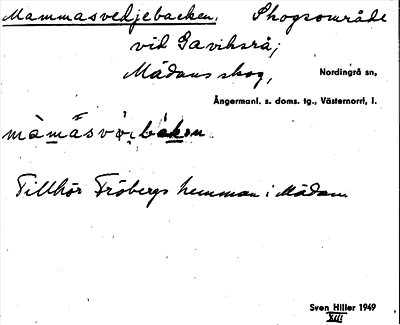 Mammasvedjebacken, Skogsområde
vid Gaviksrå,
Mädans skog, Nordingrå sn,
Ångermanl. s. doms. tg., Västernorrl, l.
Tillhör Fröbergs hemman i Mädan
Sven Hiller 1949
XIII